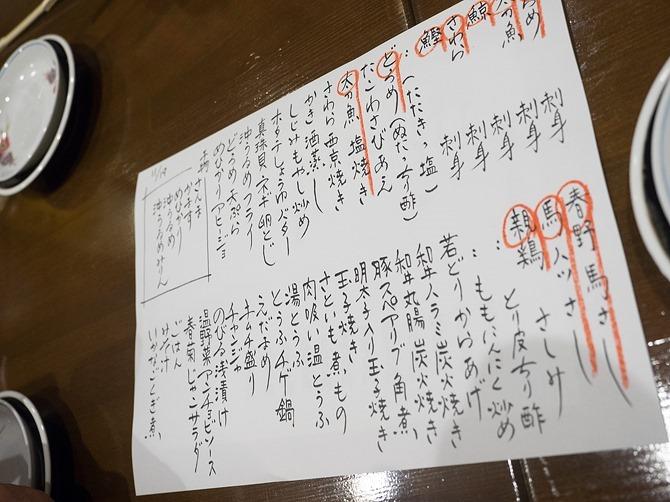 刺身
刺身
鯨 刺身
さわら 刺身
鰹 刺身
〃 (たたきっ塩)
どろめ (ぬたっちり酢)
たこわさびあん
太刀魚 塩焼き
さわら 西京焼き
かき酒蒸し
しじみもやし炒め
ホタテしょうゆバター
真珠貝ネギ卵とじ
沖うるめフライ
どろめ天ぷら
めひかりアヒージョ
干物
かます
めひかり
沖うるめ
沖うるめみりん
11/19
春野 馬さし
馬ハツさし
親鶏 さしみ
〃 とり皮ちり酢
〃 ももにんにく炒め
若どりからあげ
和牛ハラミ炭火焼き
和牛丸腸 炭火焼き
豚スペアリブ角煮
明太子入り玉子焼き
玉子焼き
さといも煮いもの
肉吸い温とうふ
湯とうふ
とうふチゲ鍋
えだまめ
キムチ盛り
チャンジャ
のびる浅漬け
温野菜アンチョビソース
春菊じゃこサラダ
ごはん
みそ汁